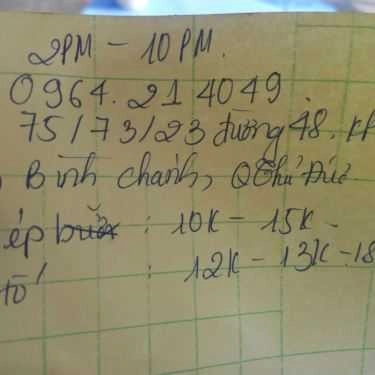 2PM - 10PM.
0964.214049.
75/73/23 đường 48, KP
Bình chánh, QThủ Đức
ép : 10K - 15K -
tờ : 12K - 13K - 18